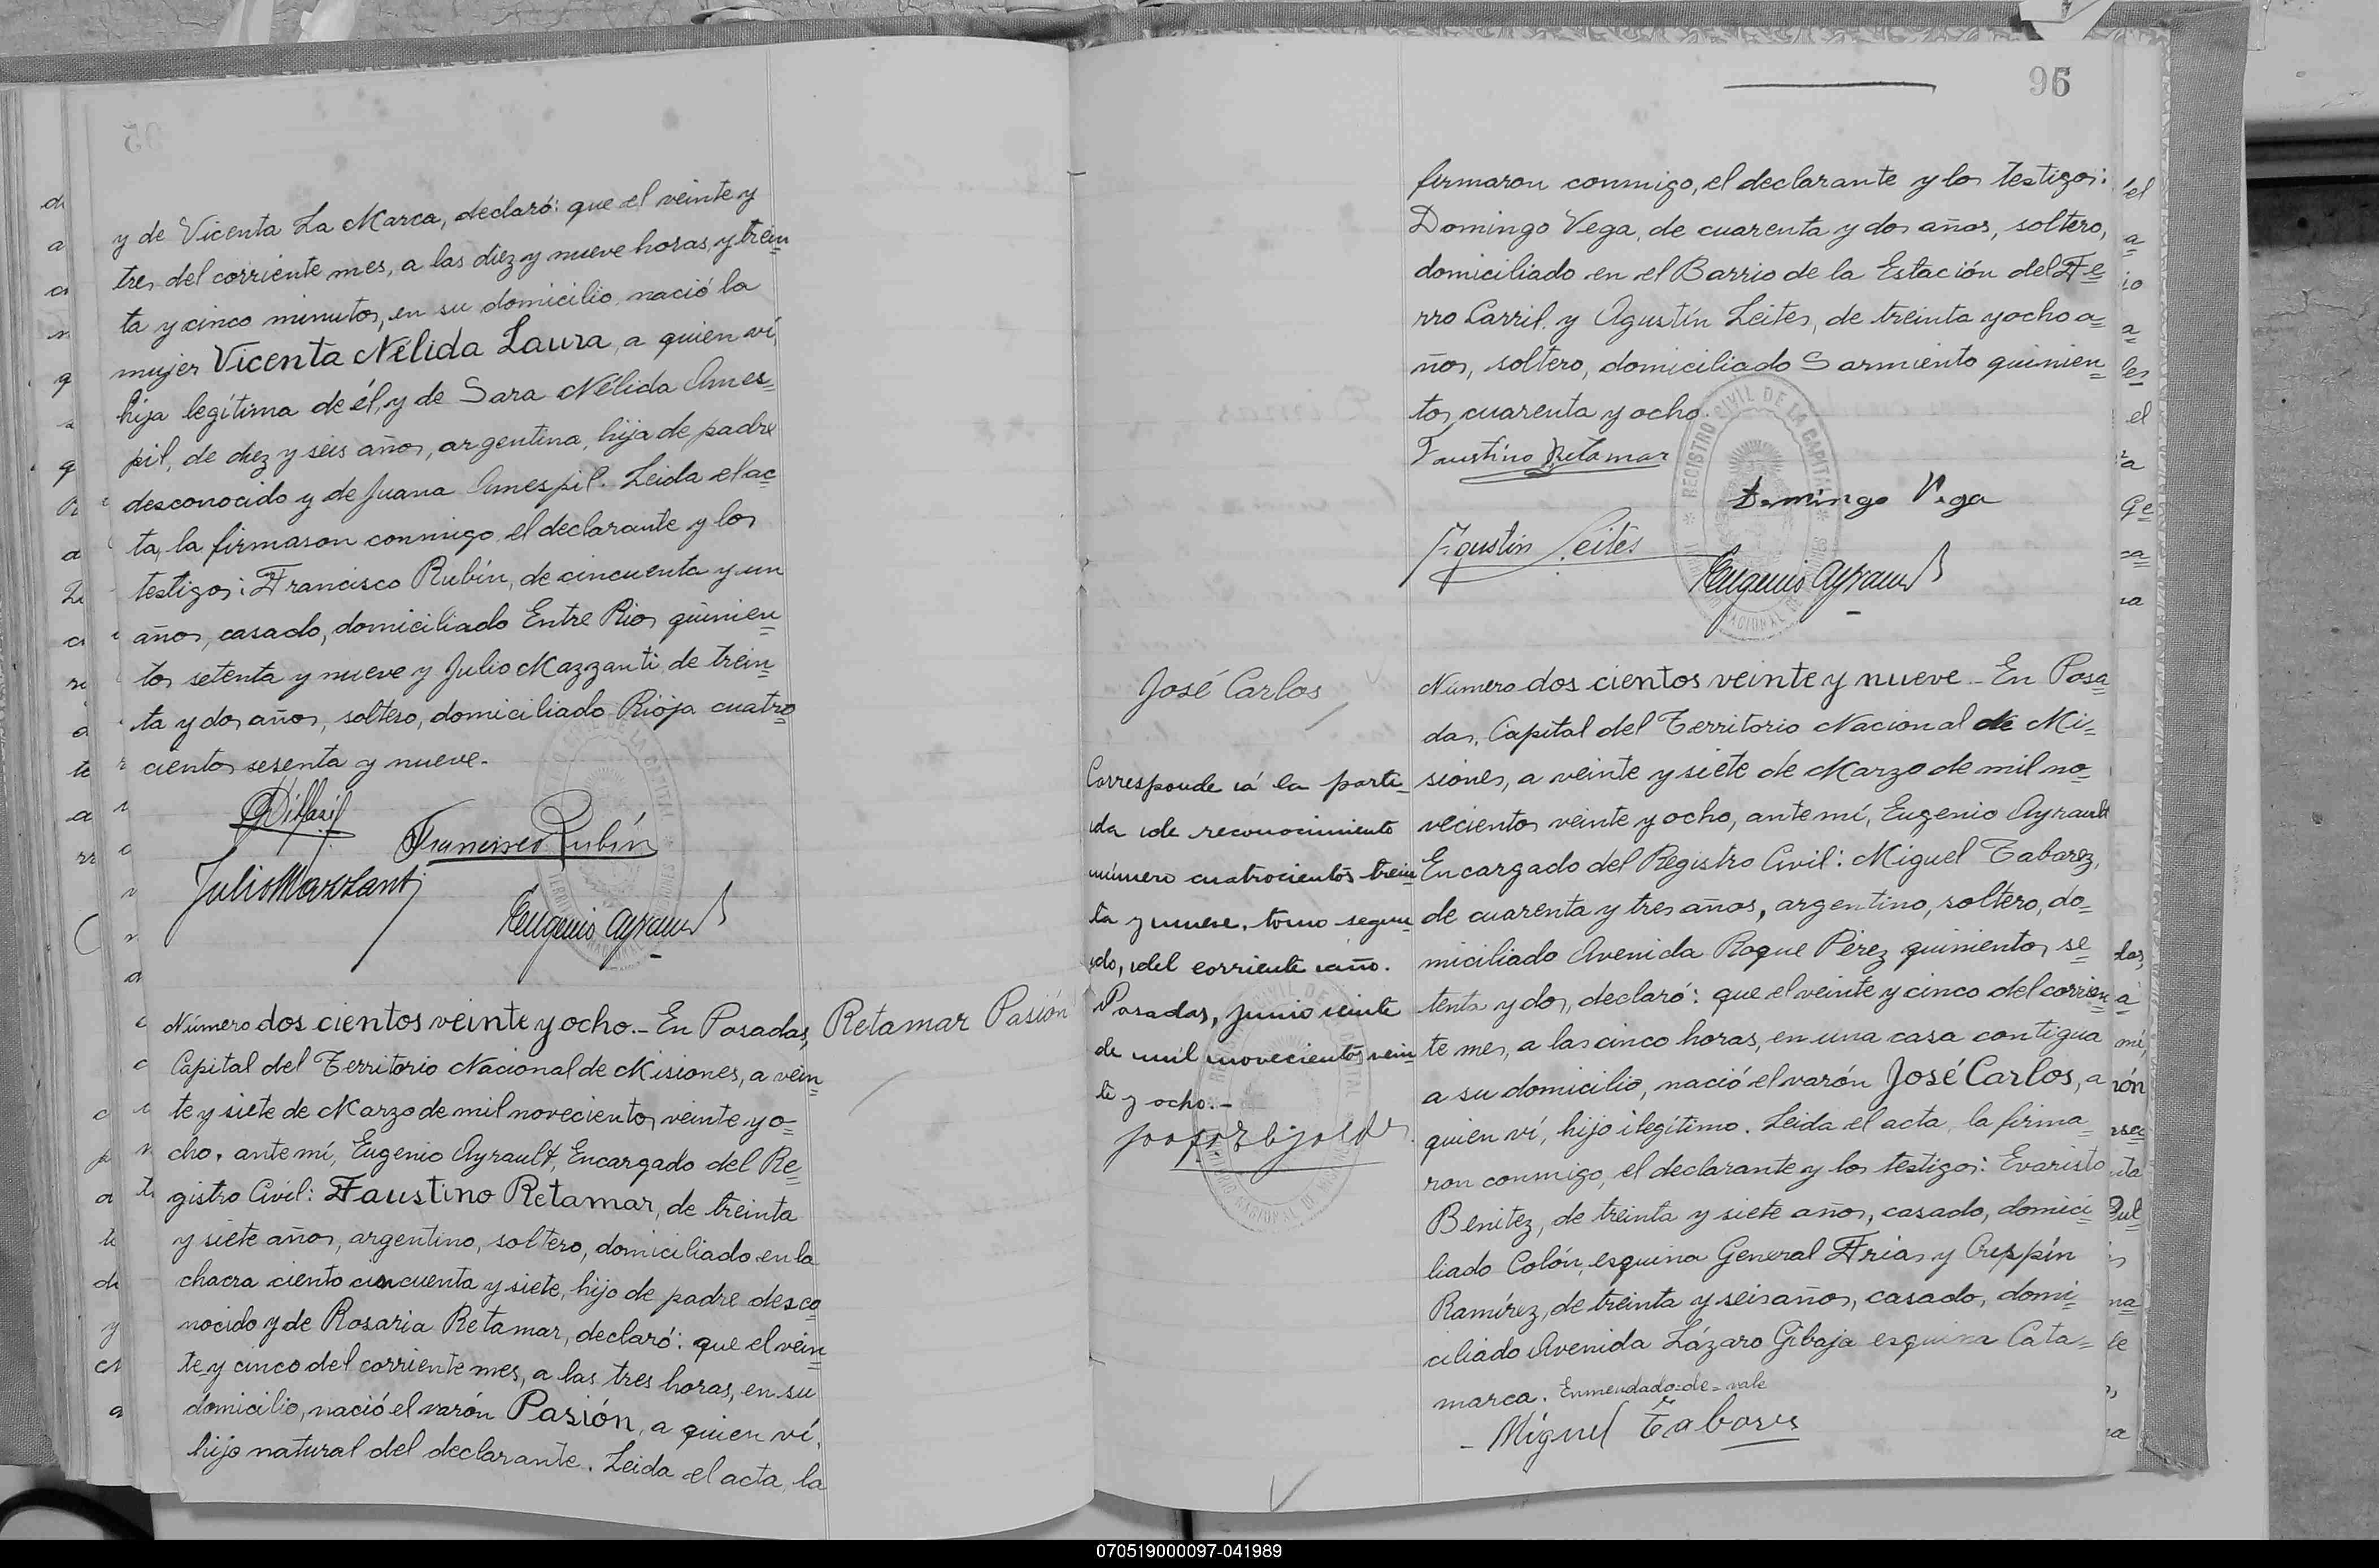 y de Vicenta La Marca, declaró: que el veinte y
tres del corriente mes, a las diez y nueve horas, y trein=
ta y cinco minutos, en su domicilio, nació la
mujer Vicenta Nélida Laura, a quien ví,
hija legítima de él, y de Sara Nélida Ames=
pil, de diez y seis años, argentina, hija de padre
desconocido y de Juana Amespil. Leida el ac=
ta, la firmaron conmigo, el declarante y los
testigos: Francisco Rubín, de cincuenta y un
años, casado, domiciliado Entre Rios quinien=
tos setenta y nueve y Julio Mazzanti, de trein=
ta y dos años, soltero, domiciliado Rioja cuatro=
cientos sesenta y nueve.-
Francisco Rubín
Julio Mazzanti
Eugenio Ayrault
Número dos cientos veinte y ocho.- En Posadas,
Retamar Pasión
Capital del Territorio Nacional de Misiones, a vein=
te y siete de Marzo de mil novecientos veinte y o=
cho, ante mí, Eugenio Ayrault, Encargado del Re=
gistro Civil: Faustino Retamar, de treinta
y siete años, argentino, soltero, domiciliado en la
chacra ciento cincuenta y siete, hijo de padre desco=
nocido y de Rosaria Retamar, declaró: que el vein=
te y cinco del corriente mes, a las tres horas, en su
domicilio, nació el varón Pasión, a quien ví,
hijo natural del declarante. Leida el acta, la
96
firmaron conmigo, el declarante y los testigos:
Domingo Vega, de cuarenta y dos años, soltero,
domiciliado en el Barrio de la Estación del Fe=
rro Carril, y Agustín Leites, de treinta y ocho a=
ños, soltero, domiciliado Sarmiento quinien=
tos, cuarenta y ocho.
Faustino Retamar
Domingo Vega
Agustin Leites
Eugenio Ayrault
REGISTRO CIVIL DE LA CAPITAL
José Carlos
Corresponde á la parti=
da de reconocimiento
número cuatrocientos trein=
ta y nueve, tomo segun=
do, del corriente año.
Posadas, junio veinte
de mil novecientos vein=
te y ocho.-
Número dos cientos veinte y nueve.- En Posa=
das, Capital del Territorio Nacional de Mi=
siones, a veinte y siete de Marzo de mil no=
vecientos veinte y ocho, ante mí, Eugenio Ayrault
Encargado del Registro Civil: Miguel Tabarez,
de cuarenta y tres años, argentino, soltero, do=
miciliado Avenida Roque Pérez quinientos se=
tenta y dos, declaró: que el veinte y cinco del corrien=
te mes, a las cinco horas, en una casa contigua
a su domicilio, nació el varón José Carlos, a
quien ví, hijo ilegítimo. Leida el acta, la firma=
ron conmigo, el declarante y los testigos: Evaristo
Benitez, de treinta y siete años, casado, domici=
liado Colón, esquina General Frias y Crispín
Ramírez, de treinta y seis años, casado, domi=
ciliado Avenida Lázaro Gibaja esquina Cata=
marca. Enmendado=de=vale
Miguel Tabares
070519000097-041989